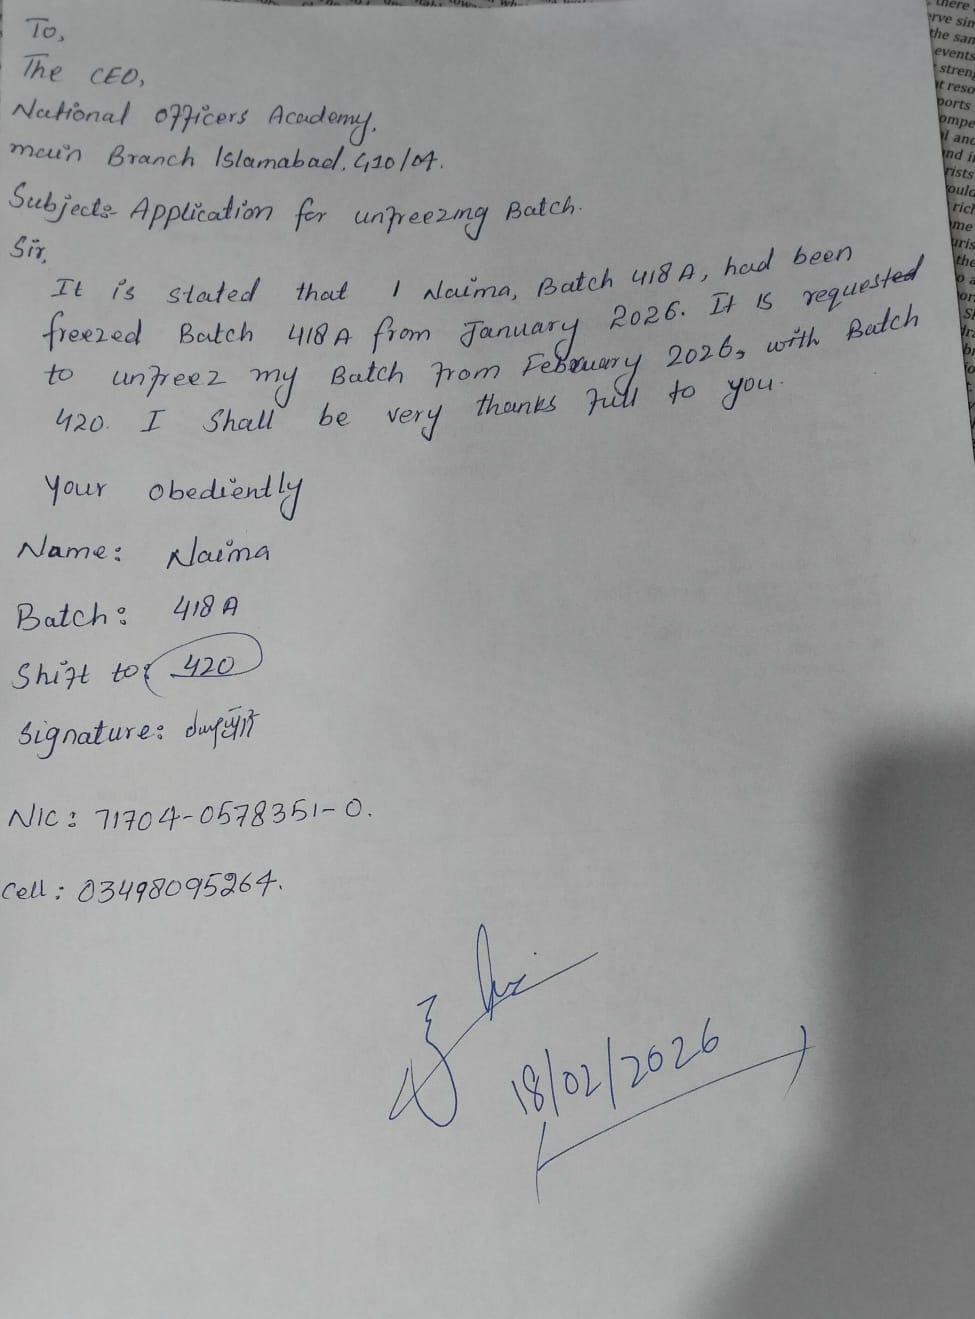 To,
The CEO,
National officers Academy,
main Branch Islamabad. G10/04.
Subject:- Application for unfreezing Batch.
Sir,
It is stated that I Naima, Batch 418 A, had been
freezed Batch 418 A from January 2026. It is requested
to unfreez my Batch from February 2026, with Batch
420. I Shall be very thanks full to you.
Your obediently
Name: Naima
Batch: 418 A
Shift to: 420
Signature:
NIC: 71704-0578351-0.
Cell: 03498095264.
18/02/2026